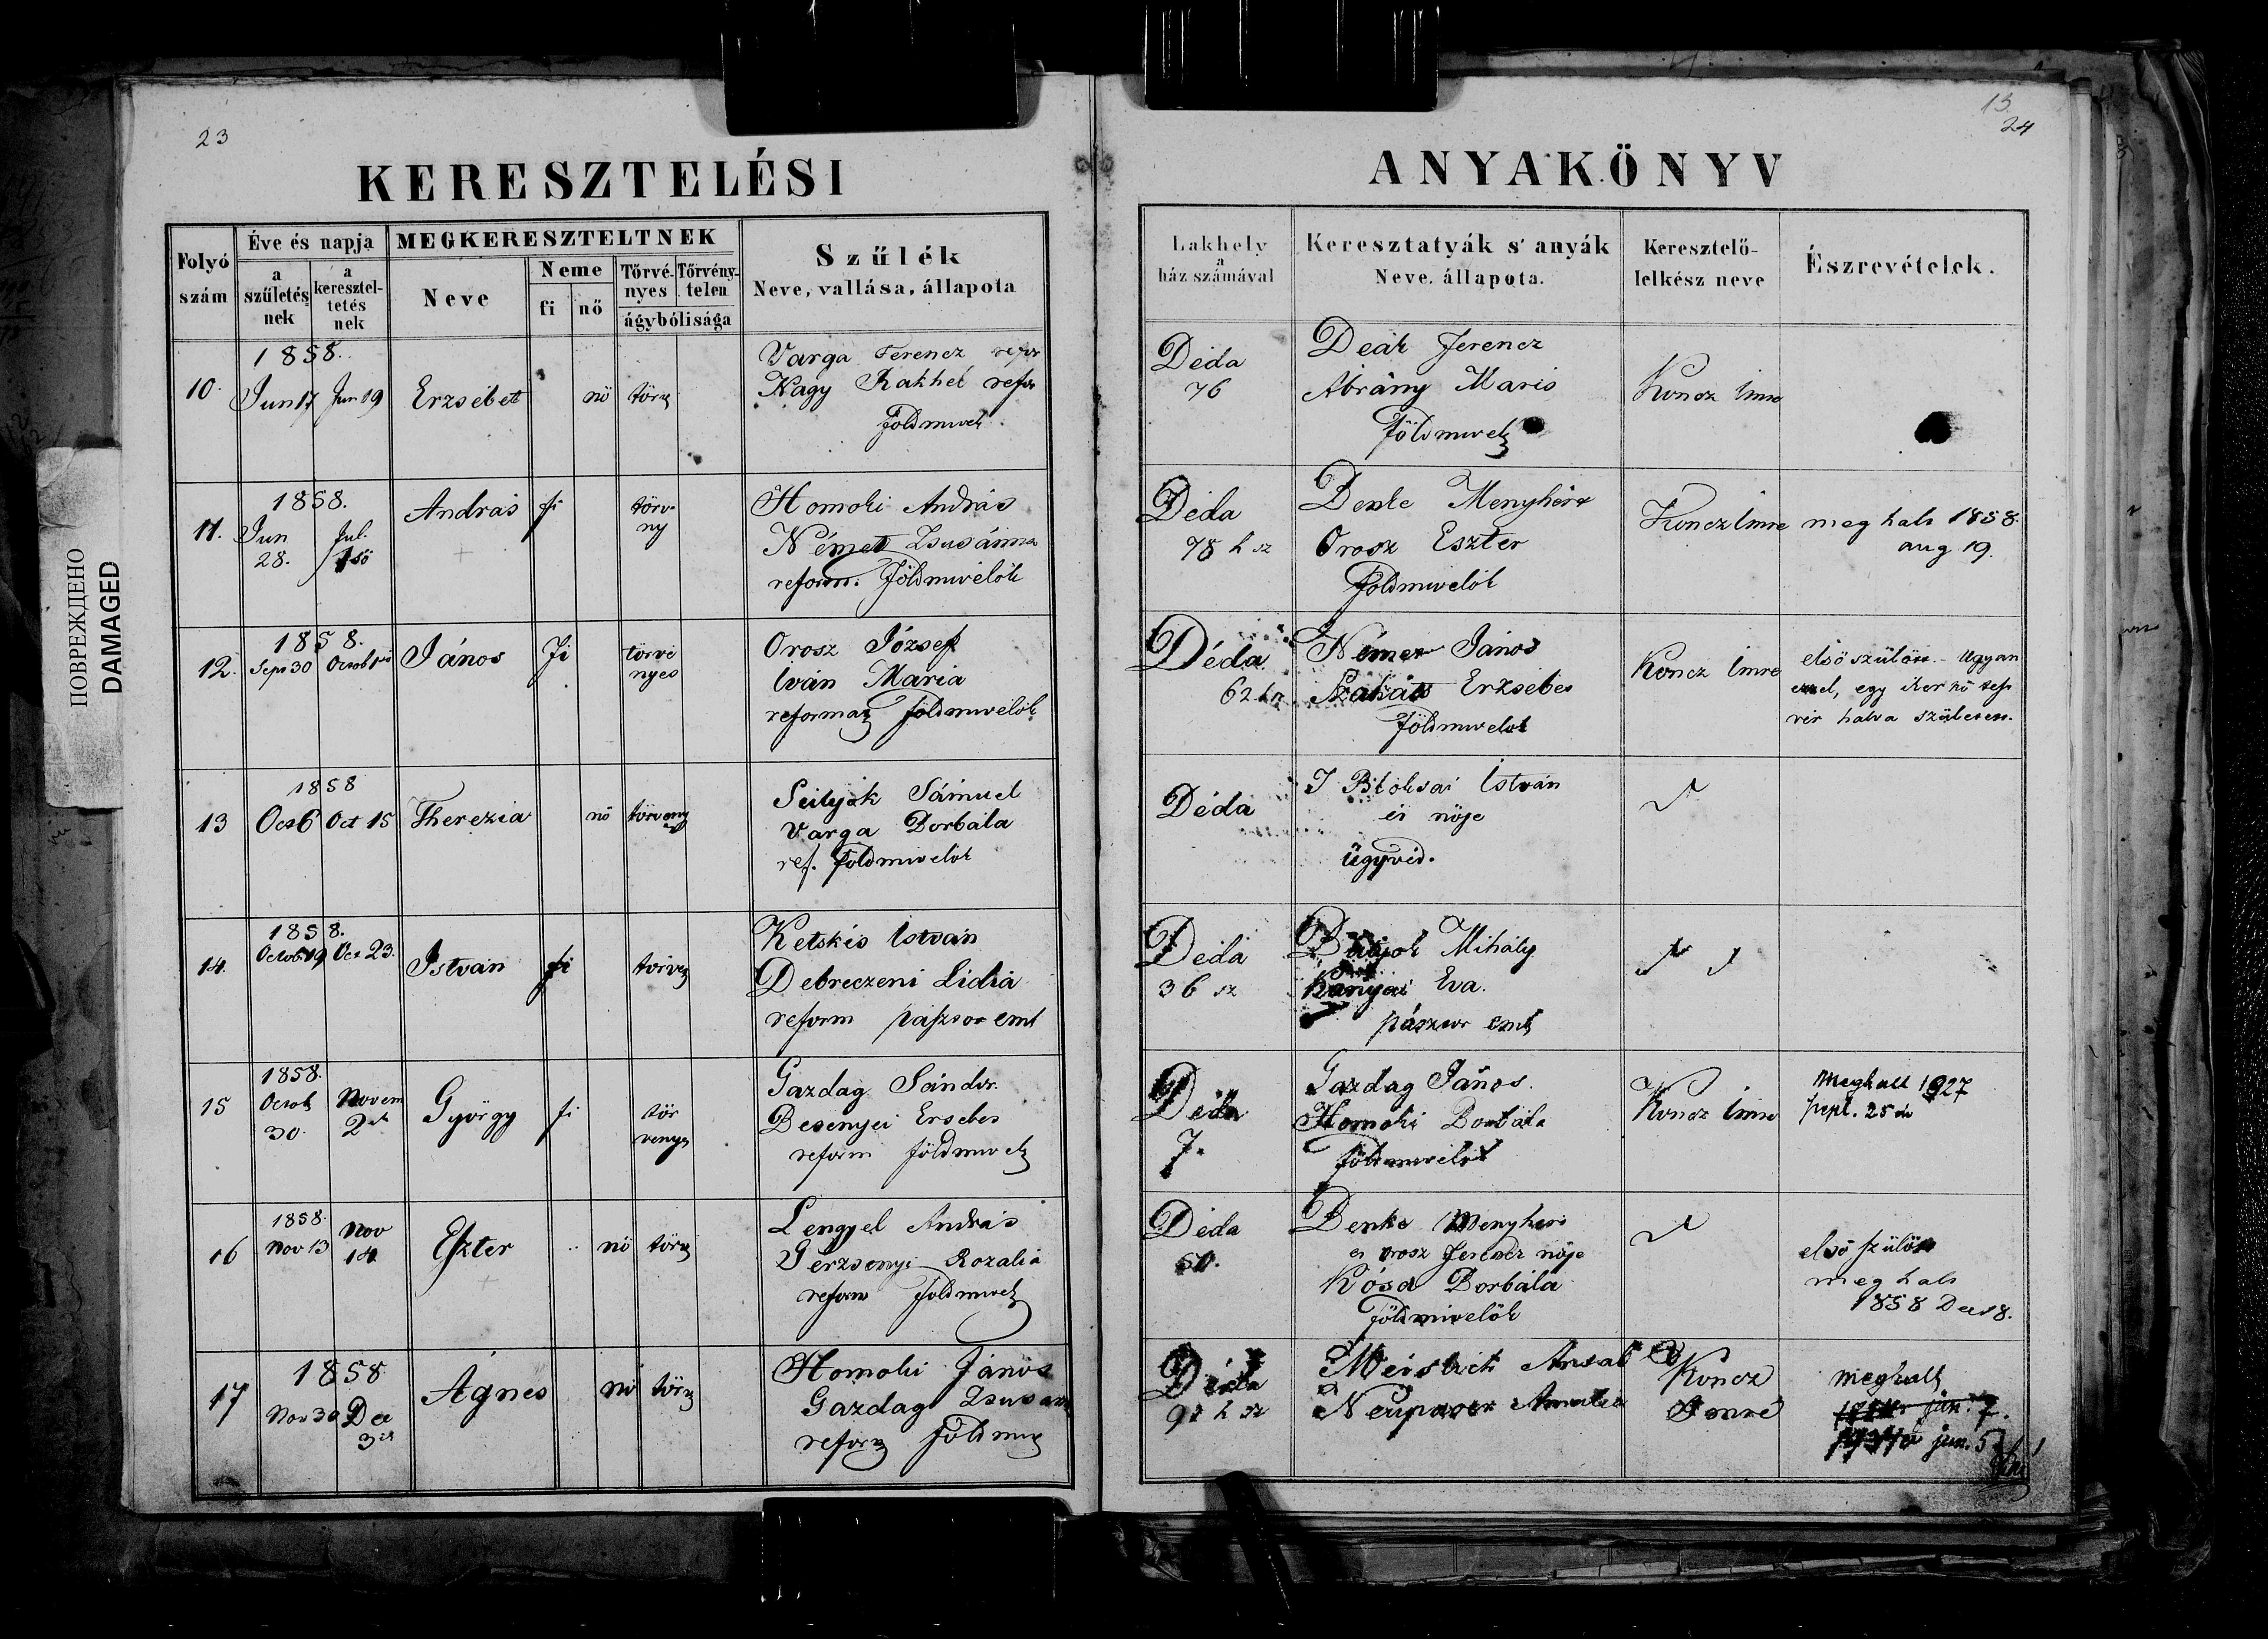 23
KERESZTELÉSI
Folyó szám
Éve és napja
a születés nek
a keresztel- tetés nek
MEGKERESZTELTNEK
Neve
Neme
fi
nő
Törvé- nyes
Törvény- telen
ágybólisága
Szülék
Neve, vallása, állapota
10.
1858.
Jun 17
Jun 19
Erzsébet
nö
törv
Varga Ferencz refor
Nagy Rakhel refor
földmivel
11.
1858.
Jun 28.
Jul. 1ső
András
fi
törv- ny
Homoki András
Német Zsusánna
reform. földmivelök
12.
1858.
Sept 30
Octob 1ső
János
fi
törvé nyes
Orosz József
Iván Mária
reformat földmivelök
13
1858
Oct 6
Oct 15
Therezia
nö
törveny
Sámuel
Varga Borbála
ref. földmivelok
14.
1858.
Octob 19
Oct 23.
István
fi
törve
Ketskés István
Debreczeni Lidia
reform pásztor emb
15
1858.
Octob 30.
Novem 2ik
György
fi
tör veny
Gazdag Sándor
Besenyei Ersebet
reform földmivel
16
1858.
Nov 13
Nov 14
Eszter
nö
törv
Lengyel András
Gerzsenyi Rozalia
reform földmivel
17
1858.
Nov 30
Dec 3ik
Ágnes
nö
törv
Homoki János
Gazdag Zsusan
reform földmiv
13.
24
ANYAKÖNYV
Lakhely
a
ház számával
Keresztatyák s' anyák
Neve, állapota.
Keresztelő-
lelkész neve
Észrevételek.
Déda
76
Deák Ferencz
Ábrány Maris
földmivel
Koncz Imre
Déda
78 h sz
Benke Menyhért
Orosz Eszter
földmivelök
Koncz Imre
meghalt 1858.
aug 19.
Déda
62
Német János
Szakáts Erzsebet
földmivelok
Koncz Imre
első szülött. Ugyan
ezzel, egy iker nő test
vér halva született.
Déda
István
és nöje
ügyvéd.
Déda
36 sz
Mihály
Kányai Eva.
pásztor emb
Déda
7.
Gazdag János.
Homoki Borbála
földmivelök
Koncz Imre
Meghalt 1927
sept. 25 én
Déda
50.
Benke Menyhert
es orosz Ferencz nöje
Kósa Borbála
földmivelök
első szülött
meghalt
1858 Dec 18.
Déda
h sz
Koncz
Imre
meghalt
jun. 7.
jun. 5.
ПОВРЕЖДЕНО
DAMAGED